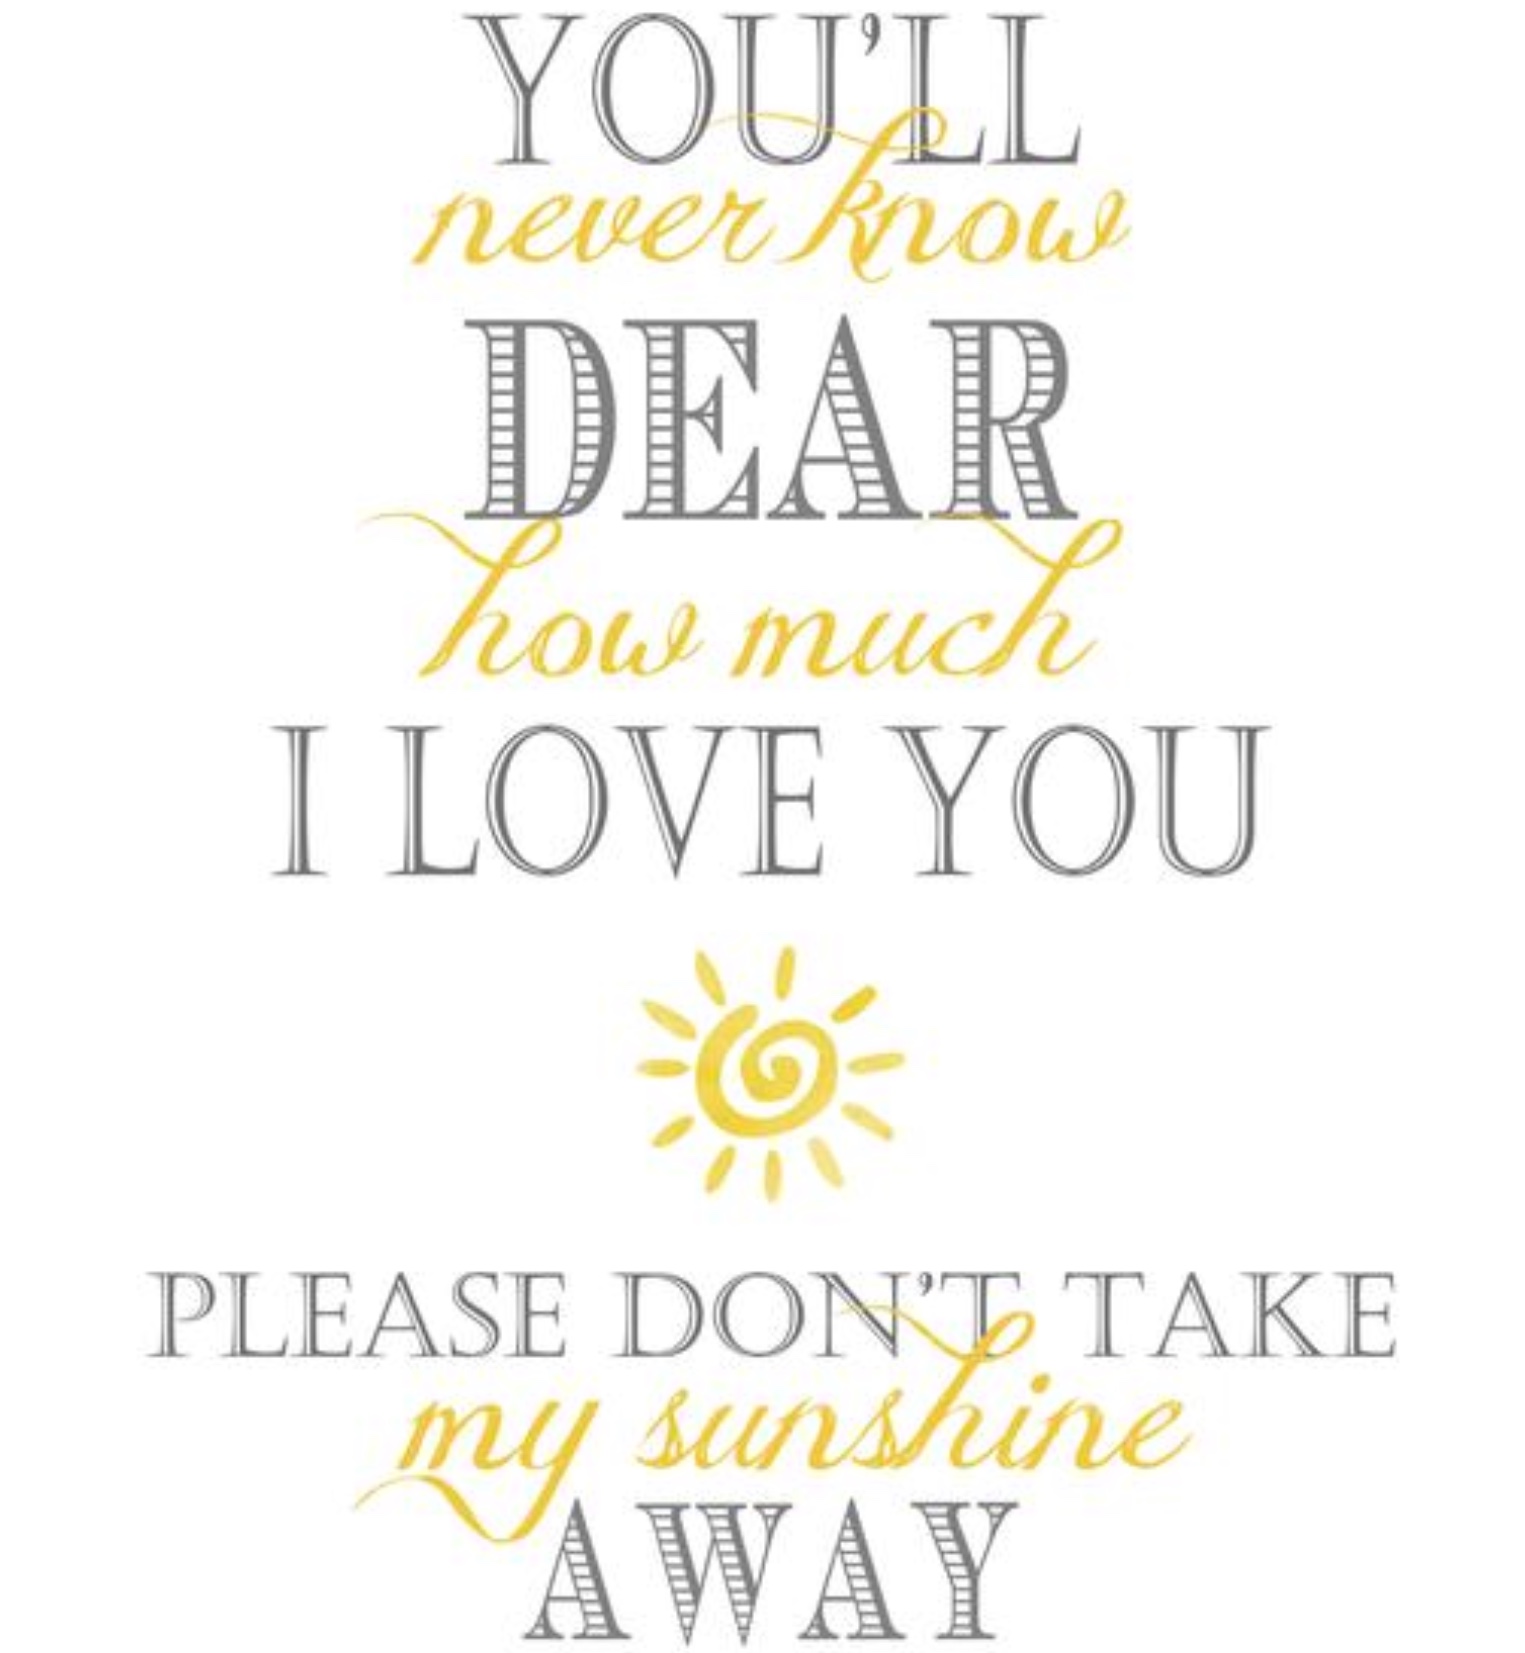 YOU'LL
never know
DEAR
how much
I LOVE YOU
PLEASE DON'T TAKE
my sunshine
AWAY